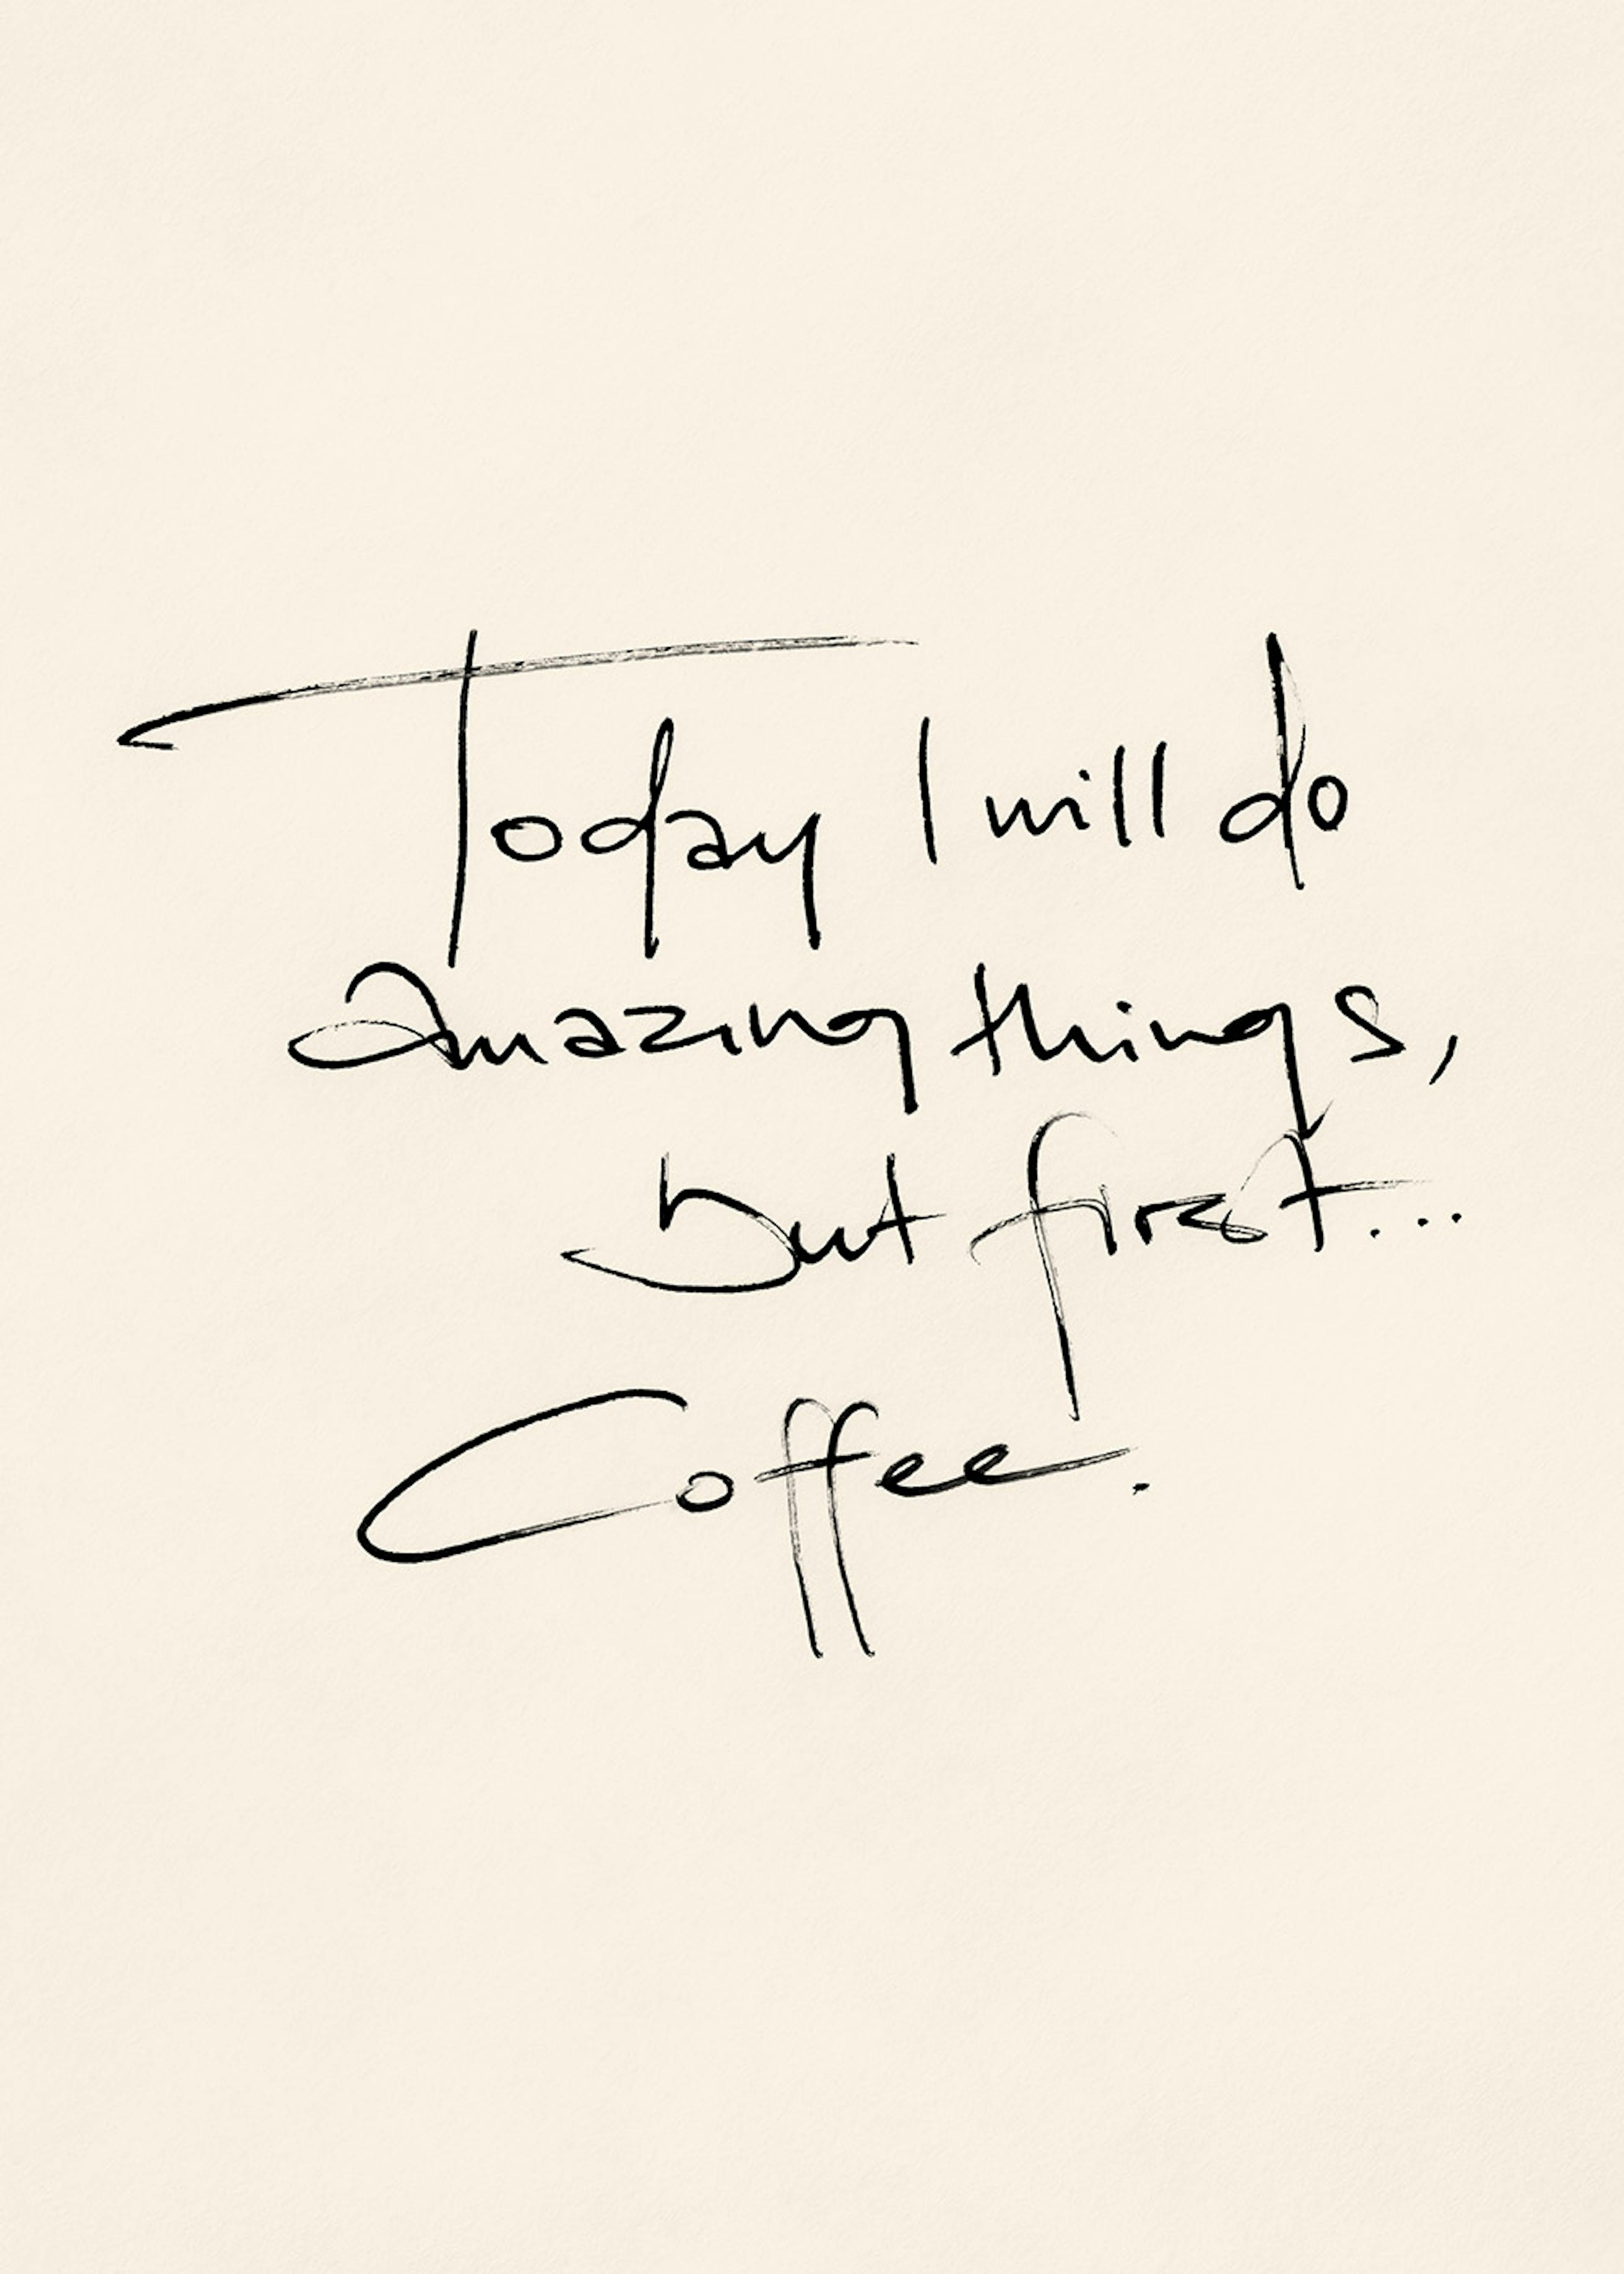 Today I will do
amazing things,
but first...
Coffee.